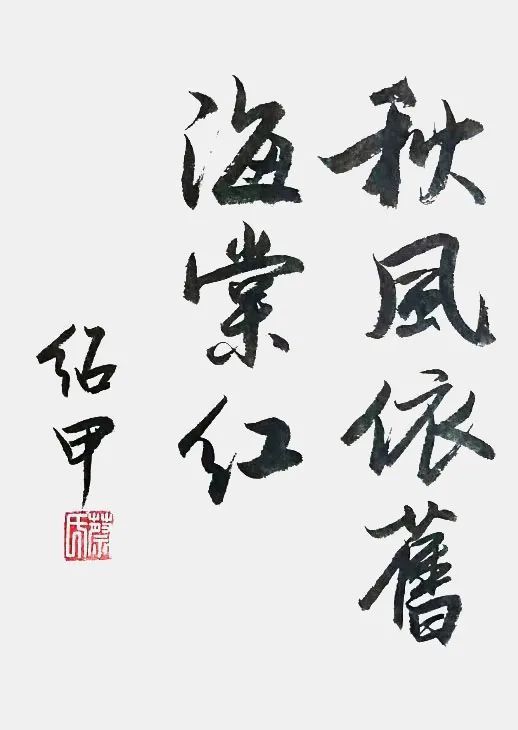 秋風依舊
海棠红
绍甲
蔡氏